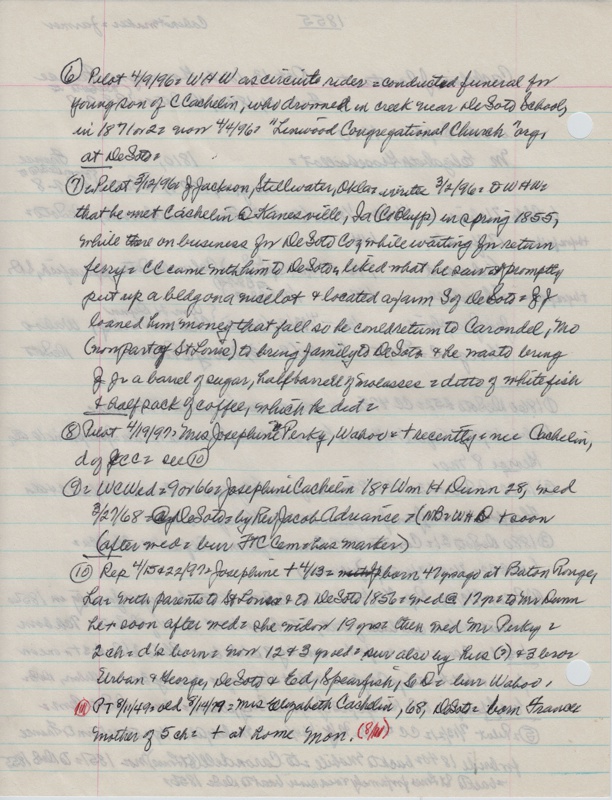 ⑥ Pilot 4/9/96 = W H W as circuit rider = conducted funeral for
young son of C Cachelin, who drowned in creek near DeSoto School,
in 1871 or 2 = now 4/4/96 = "Linwood Congregational Church" orgs
at DeSoto =
⑦ = Pilot 3/12/96 = J Jackson, Stillwater, Okla = wrote 3/2/96 = to W H W =
that he met Cachelin @ Kanesville, Ia (Co Bluffs) in spring 1855,
while there on business for DeSoto Co = while waiting for return
ferry = CC came with him to DeSoto, liked what he saw & promptly
put up a bldg on a nice lot & located a farm S of DeSoto = J J
loaned him money that fall so he could return to Carondel, Mo
(now part of St Louis) to bring family to DeSoto & he was to bring
J Jr a barrel of sugar, half barrell of molasses = ditto of whitefish
& half sack of coffee, which he did =
⑧ Pilot 4/19/97 = Mrs Josephine Perky, Wahoo = + recently = nee Cachelin,
d of JCC = see ⑩
⑨ = WCWed = 9 or 66 = Josephine Cachelin 18 & Wm H Dunn 28, wed
3/27/68 = @ DeSoto = by Rev Jacob Adriance = (NB = WHD + soon
after wed = bur Ft C Cem = has marker)
⑩ Rep 4/15 & 22/97 = Josephine + 4/13 = born 47 y ago at Baton Rouge,
La = with parents to St Louis & to DeSoto 1856 = wed @ 17 y = to Mr Dunn
he + soon after wed = she widow 19 yrs = then wed Mr Perky =
2 ch = d's born = now 12 & 3 y old = sur also by hus (?) & 3 bros
Urban & George, DeSoto & Ed, Spearfish, S D = bur Wahoo.
⑪ PT 3/11/49 = old 3/14/79 = Mrs Elizabeth Cachelin, 68, DeSoto = born France
mother of 5 ch = + at home Mon. (3/10)
1855